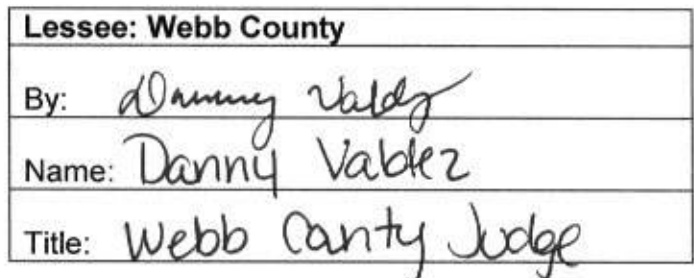 Lessee: Webb County
By: Danny Valdez
Name: Danny Valdez
Title: Webb County Judge